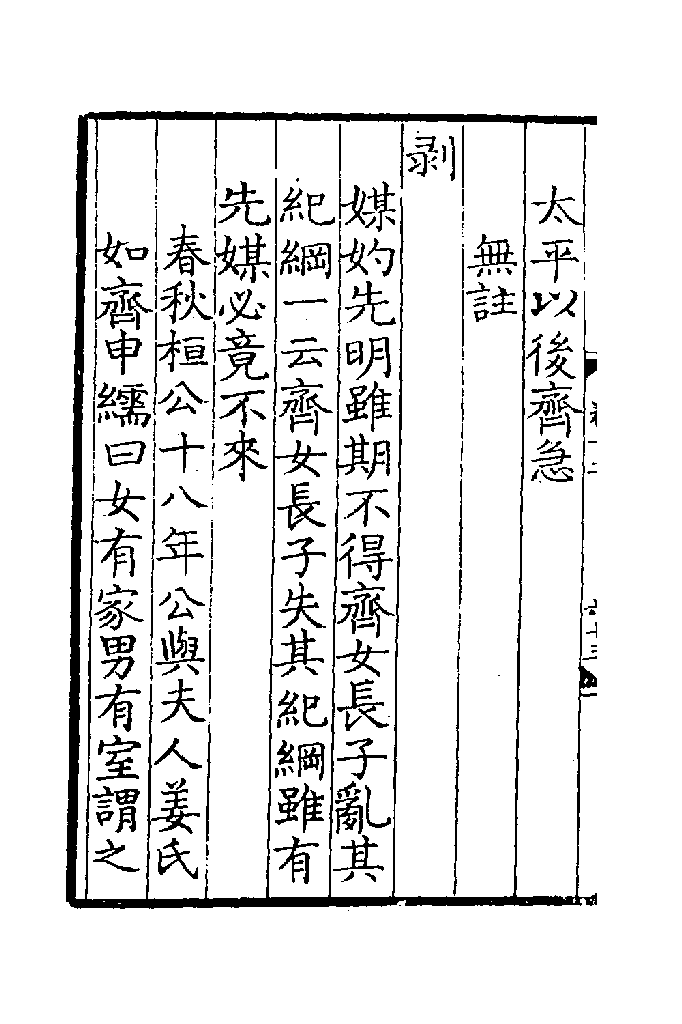 太平以後齊急
無註
剥
媒妁先明雖期不得齊女長子亂其
紀綱一云齊女長子失其紀綱雖有
先媒必竟不來
春秋桓公十八年公與夫人姜氏
如齊申繻曰女有家男有室謂之